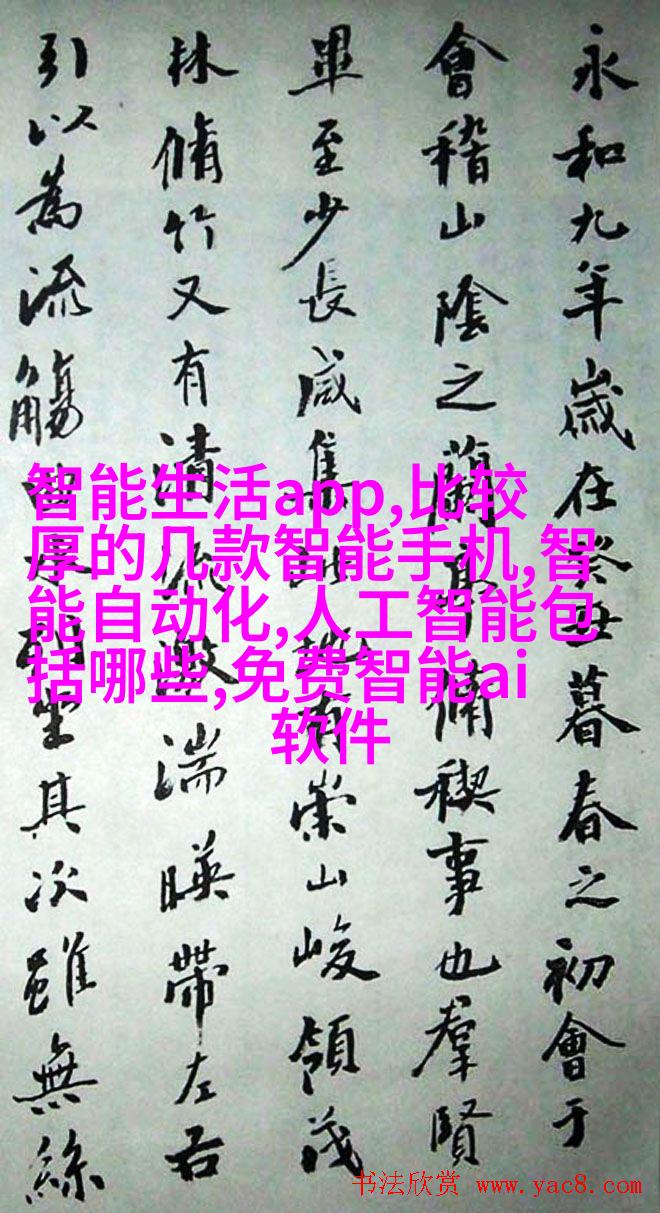 永和九年歲在癸丑暮春之初會于
會稽山陰之蘭亭脩禊事也羣賢
畢至少長咸集此地有崇山峻領茂
林脩竹又有清流激湍暎帶左右
引以為流觴曲水列坐其次雖無絲
智能生活app,比较
厚的几款智能手机,智
能自动化,人工智能包
括哪些,免费智能ai
软件
书法欣赏 www.yac8.com